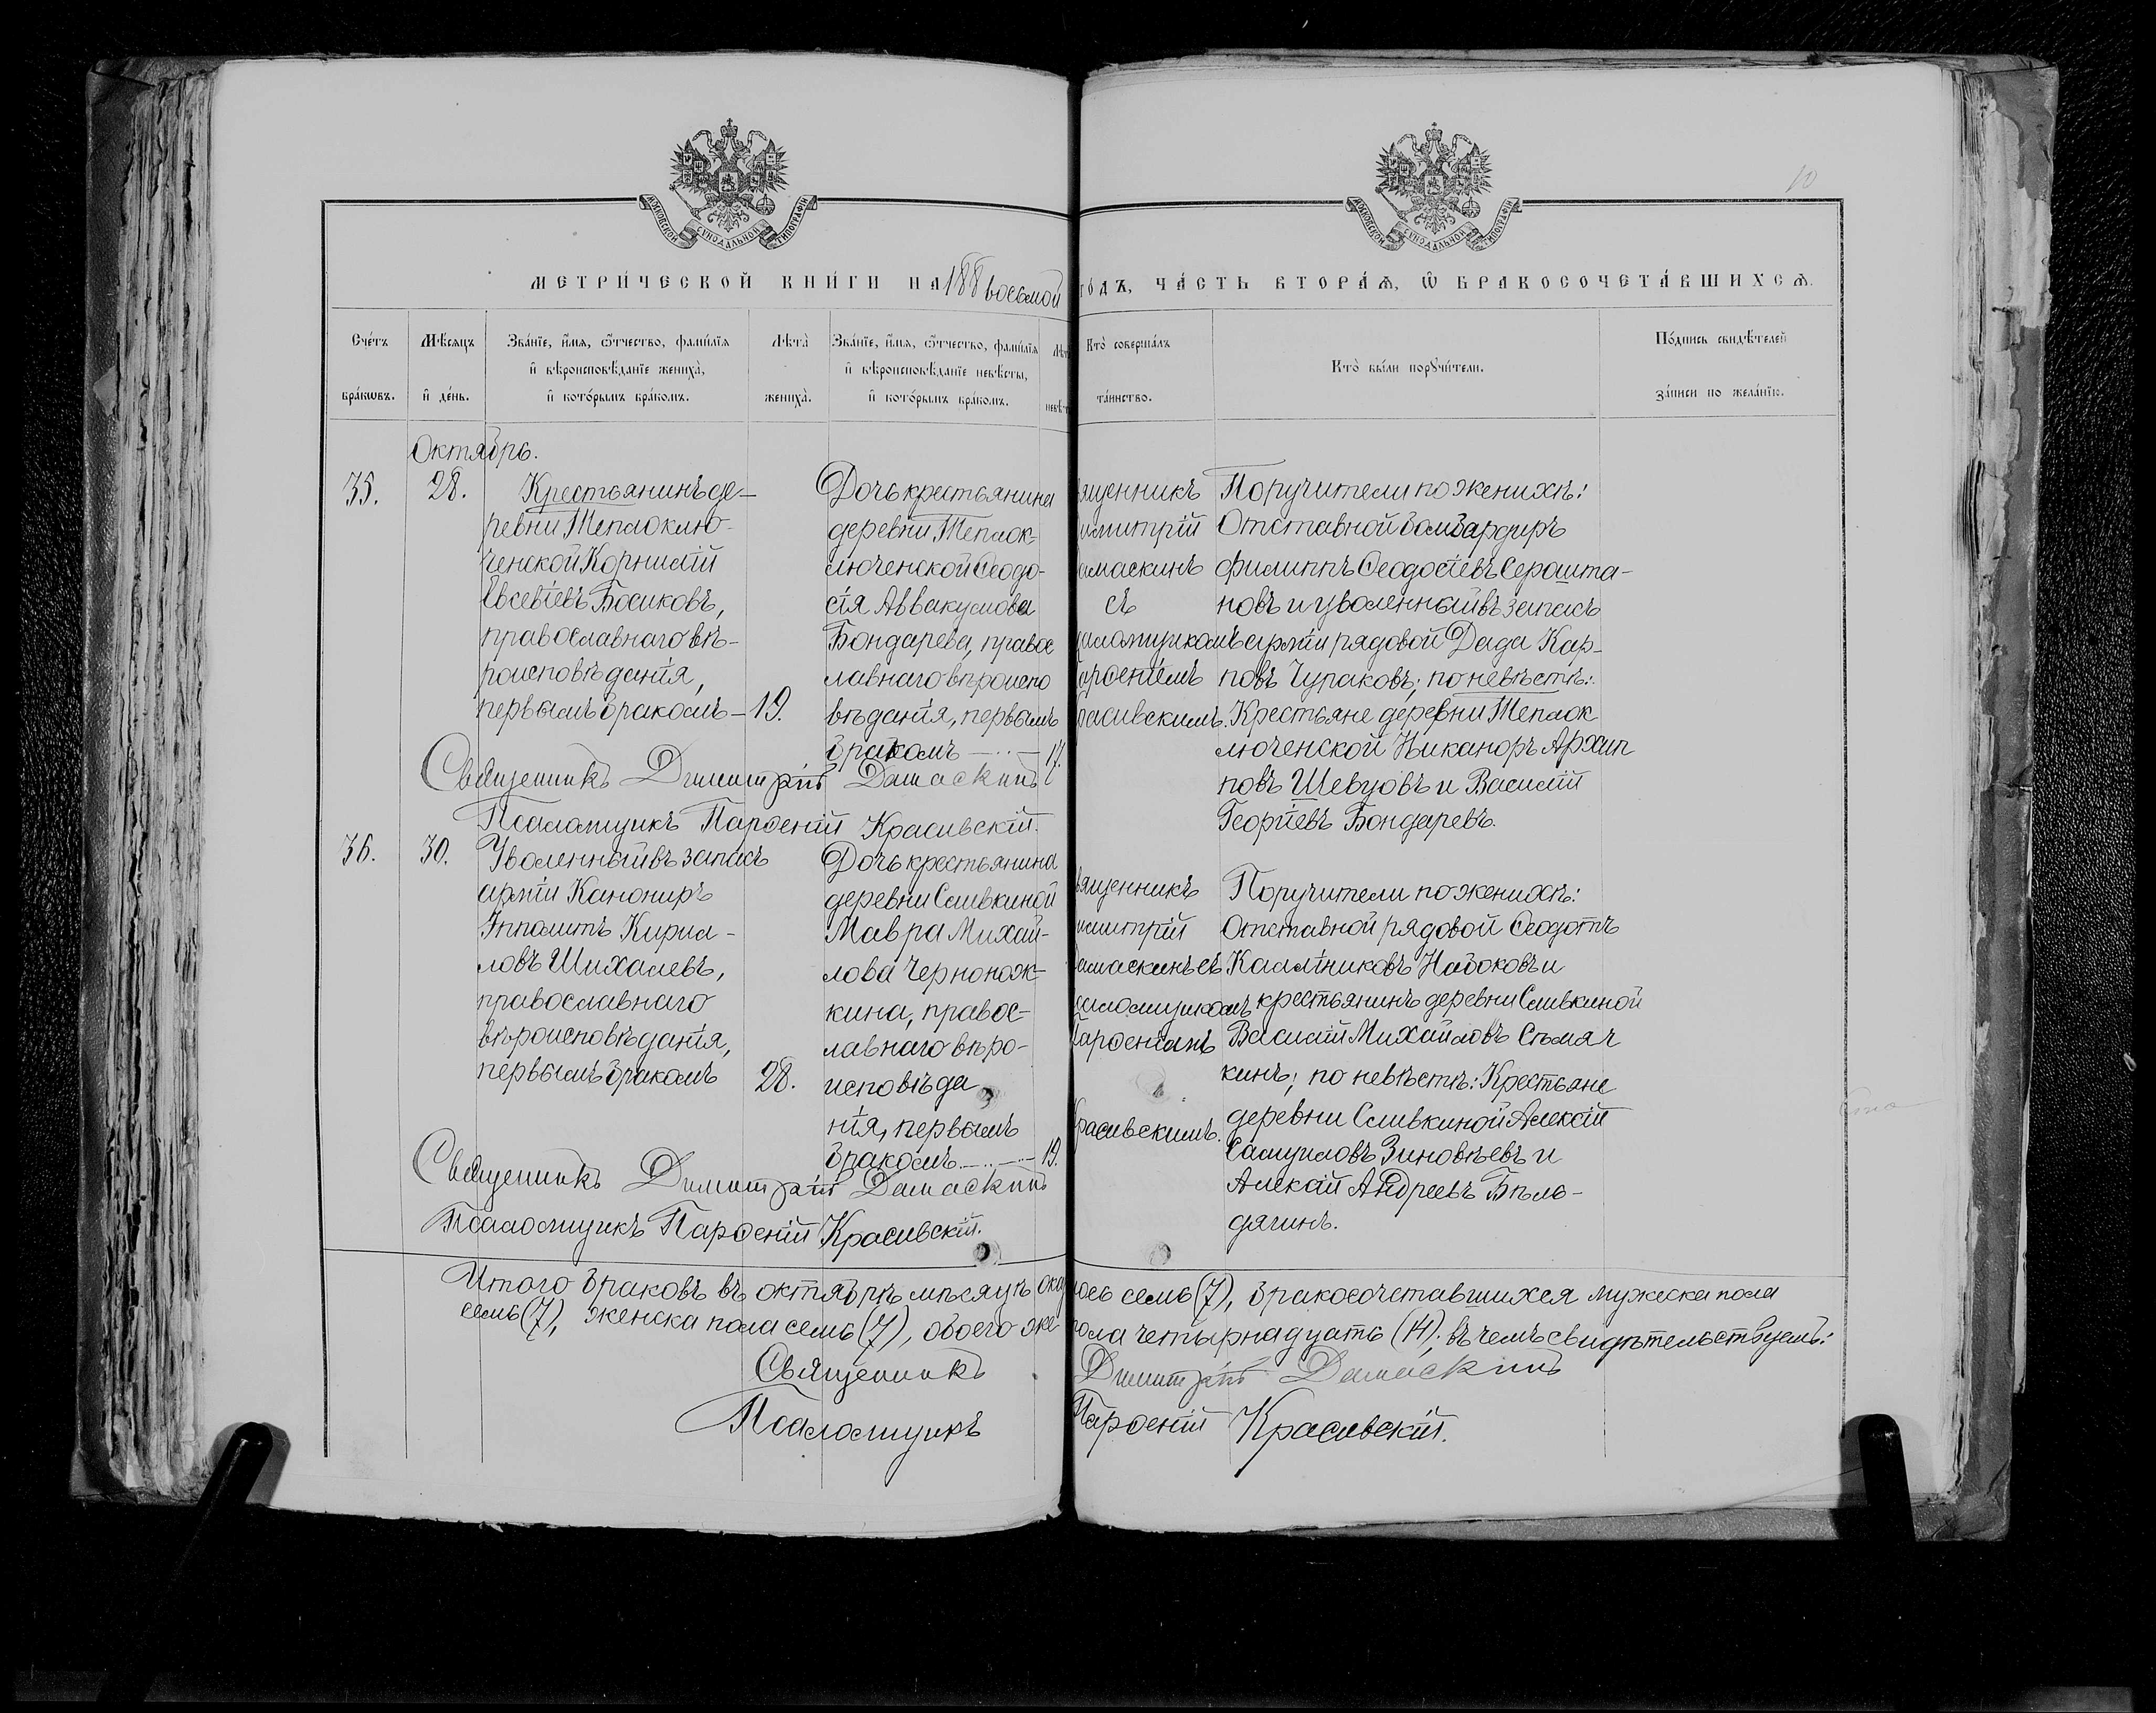 МОСКОВСКОЙ СУНОДАЛЬНОЙ ТИПОГРАФІИ
МОСКОВСКОЙ СУНОДАЛЬНОЙ ТИПОГРАФІИ
10
МЕТРИ́ЧЕСКОЙ КНИ́ГИ НА 188 восьмой го́дъ, ЧА́СТЬ ВТОРА́Ѧ, Ѽ БРАКОСОЧЕТА́ВШИХСѦ.
Сче́тъ бра́кѡвъ.
Мѣ́сяцъ и҆ де́нь.
Зва́нїе, и҆́мѧ, ѻ҆́тчество, фами́лїѧ
и҆ вѣроисповѣ́данїе жениха̀,
и҆ кото́рымъ бра́комъ.
Лѣта̀
жениха̀.
Зва́нїе, и҆́мѧ, ѻ҆́тчество, фами́лїѧ
и҆ вѣроисповѣ́данїе невѣ́сты,
и҆ кото́рымъ бра́комъ.
Лѣт
невѣ́ст
Кто̀ соверша́лъ
та́инство.
Кто̀ бы́ли порꙋчи́тели.
По́дпись свидѣ́телей
за́писи по жела́нїю.
Октябрь.
35.
28.
Крестьянинъ де-
ревни Теплоклю-
ченской Корнилій
Евсевіевъ Босиковъ,
православнаго вѣ-
роисповѣданія,
первымъ бракомъ — 19.
Дочь крестьянина
деревни Теплок-
люченской Ѳеодо-
сія Аввакумова
Бондарева, правос
лавнаго вѣроиспо
вѣданія, первымъ
бракомъ — 17.
ященникъ
имитрій
амаскинъ
съ
аломщикомъ
арѳеніемъ
расивскимъ.
Поручители по женихѣ:
Отставной бомбардиръ
Филиппъ Ѳеодосіевъ Серошта-
новъ и уволенный въ запасъ
арміи рядовой Дада Кар-
повъ Чураковъ; по невѣстѣ:
Крестьяне деревни Теплок
люченской Никаноръ Архип
повъ Шевцовъ и Василій
Георгіевъ Бондаревъ.
Священникъ Димитрій Дамаскинъ
Псаломщикъ Парѳеній Красивскій.
36.
30.
Уволенный въ запасъ
арміи Канониръ
Ипполитъ Кирил-
ловъ Шихалевъ,
православнаго
вѣроисповѣданія,
первымъ бракомъ 28.
Дочь крестьянина
деревни Сливкиной
Мавра Михай-
лова Черноnож-
кина, правос-
лавнаго вѣро-
исповѣда
нія, первымъ
бракомъ — 19.
вященникъ
имитрій
амаскинъ съ
саломщикомъ
Парѳеніемъ
Красивскимъ.
Поручители по женихѣ:
Отставной рядовой Ѳеодотъ
Каллиниковъ Набоковъ и
крестьянинъ деревни Сливкиной
Василій Михайловъ Съмяч
кинъ; по невѣстѣ: Крестьяне
деревни Сливкиной Алексій
Самуиловъ Зиновѣевъ и
Алексій Андреевъ Бѣль-
дягинъ.
Священникъ Димитрій Дамаскинъ
Псаломщикъ Парѳеній Красивскій.
Итого браковъ въ октябрѣ мѣсяцѣ ока лось семь (7), бракосочетавшихся мужеска пола
семь (7), женска пола семь (7), обоего же пола четырнадцать (14); въ чемъ свидѣтельствуемъ:
Священникъ Димитрій Дамаскинъ
Псаломщикъ Парѳеній Красивскій.